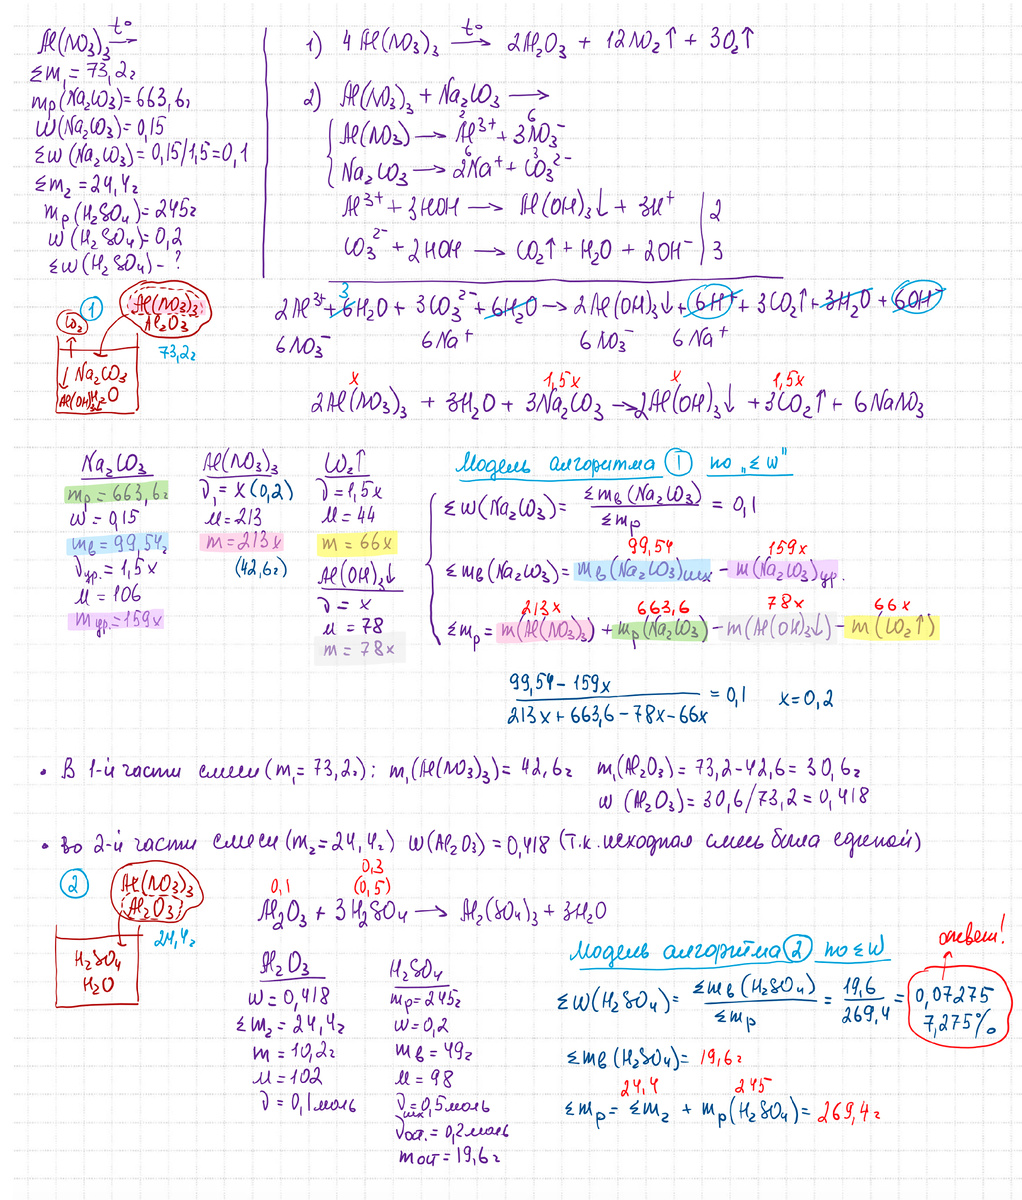 Al(NO₃)₃ t° →
Σm₁ = 73,2г
mр(Na₂CO₃) = 663,6г
w(Na₂CO₃) = 0,15
Σw(Na₂CO₃) = 0,15/1,5 = 0,1
Σm₂ = 24,4г
mр(H₂SO₄) = 245г
w(H₂SO₄) = 0,2
Σw(H₂SO₄) - ?
1) 4Al(NO₃)₃ t° → 2Al₂O₃ + 12NO₂↑ + 3O₂↑
2) Al(NO₃)₃ + Na₂CO₃ →
Al(NO₃) → Al³⁺ + 3NO₃⁻
2 6
Na₂CO₃ → 2Na⁺ + CO₃²⁻
6 3
Al³⁺ + 3HOH → Al(OH)₃↓ + 3H⁺ | 2
CO₃²⁻ + 2HOH → CO₂↑ + H₂O + 2OH⁻ | 3
1
CO₂
Al(NO₃)₃
Al₂O₃
73,2г
↓ Na₂CO₃
Al(OH)₃↓ H₂O
3
2Al³⁺ + 6H₂O + 3CO₃²⁻ + 6H₂O → 2Al(OH)₃↓ + 6H⁺ + 3CO₂↑ + 3H₂O + 6OH⁻
6NO₃⁻ 6Na⁺ 6NO₃⁻ 6Na⁺
x 1,5x x 1,5x
2Al(NO₃)₃ + 3H₂O + 3Na₂CO₃ → 2Al(OH)₃↓ + 3CO₂↑ + 6NaNO₃
Na₂CO₃
mр = 663,6г
w = 0,15
mв = 99,54г
νур. = 1,5x
M = 106
mур. = 159x
Al(NO₃)₃
ν₁ = x (0,2)
M = 213
m = 213x
(42,6г)
CO₂↑
ν = 1,5x
M = 44
m = 66x
Al(OH)₃↓
ν = x
M = 78
m = 78x
Модель алгоритма 1 по „Σw"
Σw(Na₂CO₃) = Σmв(Na₂CO₃) / Σmр = 0,1
99,54 159x
Σmв(Na₂CO₃) = mв(Na₂CO₃)исх - m(Na₂CO₃)ур.
213x 663,6 78x 66x
Σmр = m(Al(NO₃)₃) + mр(Na₂CO₃) - m(Al(OH)₃↓) - m(CO₂↑)
99,54 - 159x / 213x + 663,6 - 78x - 66x = 0,1 x = 0,2
• В 1-й части смеси (m₁ = 73,2г): m₁(Al(NO₃)₃) = 42,6г m₁(Al₂O₃) = 73,2 - 42,6 = 30,6г
w(Al₂O₃) = 30,6/73,2 = 0,418
• Во 2-й части смеси (m₂ = 24,4г) w(Al₂O₃) = 0,418 (т.к. исходная смесь была единой)
2
Al(NO₃)₃
Al₂O₃
24,4г
H₂SO₄
H₂O
0,3
0,1 (0,5)
Al₂O₃ + 3H₂SO₄ → Al₂(SO₄)₃ + 3H₂O
Al₂O₃
w = 0,418
Σm₂ = 24,4г
m = 10,2г
M = 102
ν = 0,1 моль
H₂SO₄
mр = 245г
w = 0,2
mв = 49г
M = 98
νисх = 0,5 моль
νост. = 0,2 моль
mост = 19,6г
Модель алгоритма 2 по Σw
ответ!
Σw(H₂SO₄) = Σmв(H₂SO₄) / Σmр = 19,6 / 269,4 = 0,07275
7,275%
Σmв(H₂SO₄) = 19,6г
24,4 245
Σmр = Σm₂ + mр(H₂SO₄) = 269,4г